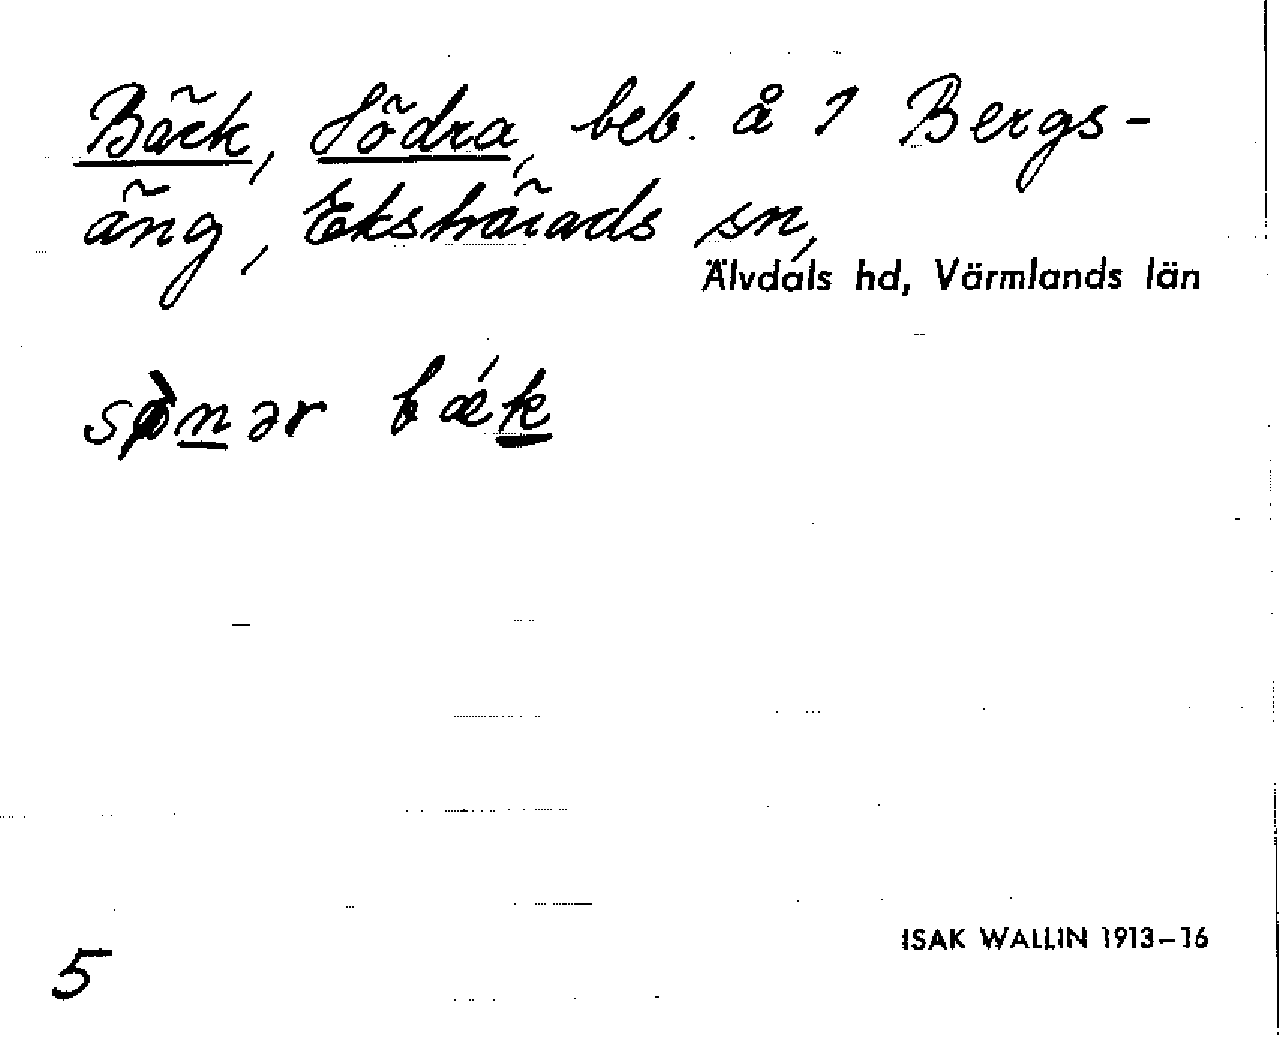 Bäck, Södra, beb. å 1 Bergs-
äng, Ekshärads sn,
Älvdals hd, Värmlands län
sø̀nər bǽk
ISAK WALLIN 1913–16
5